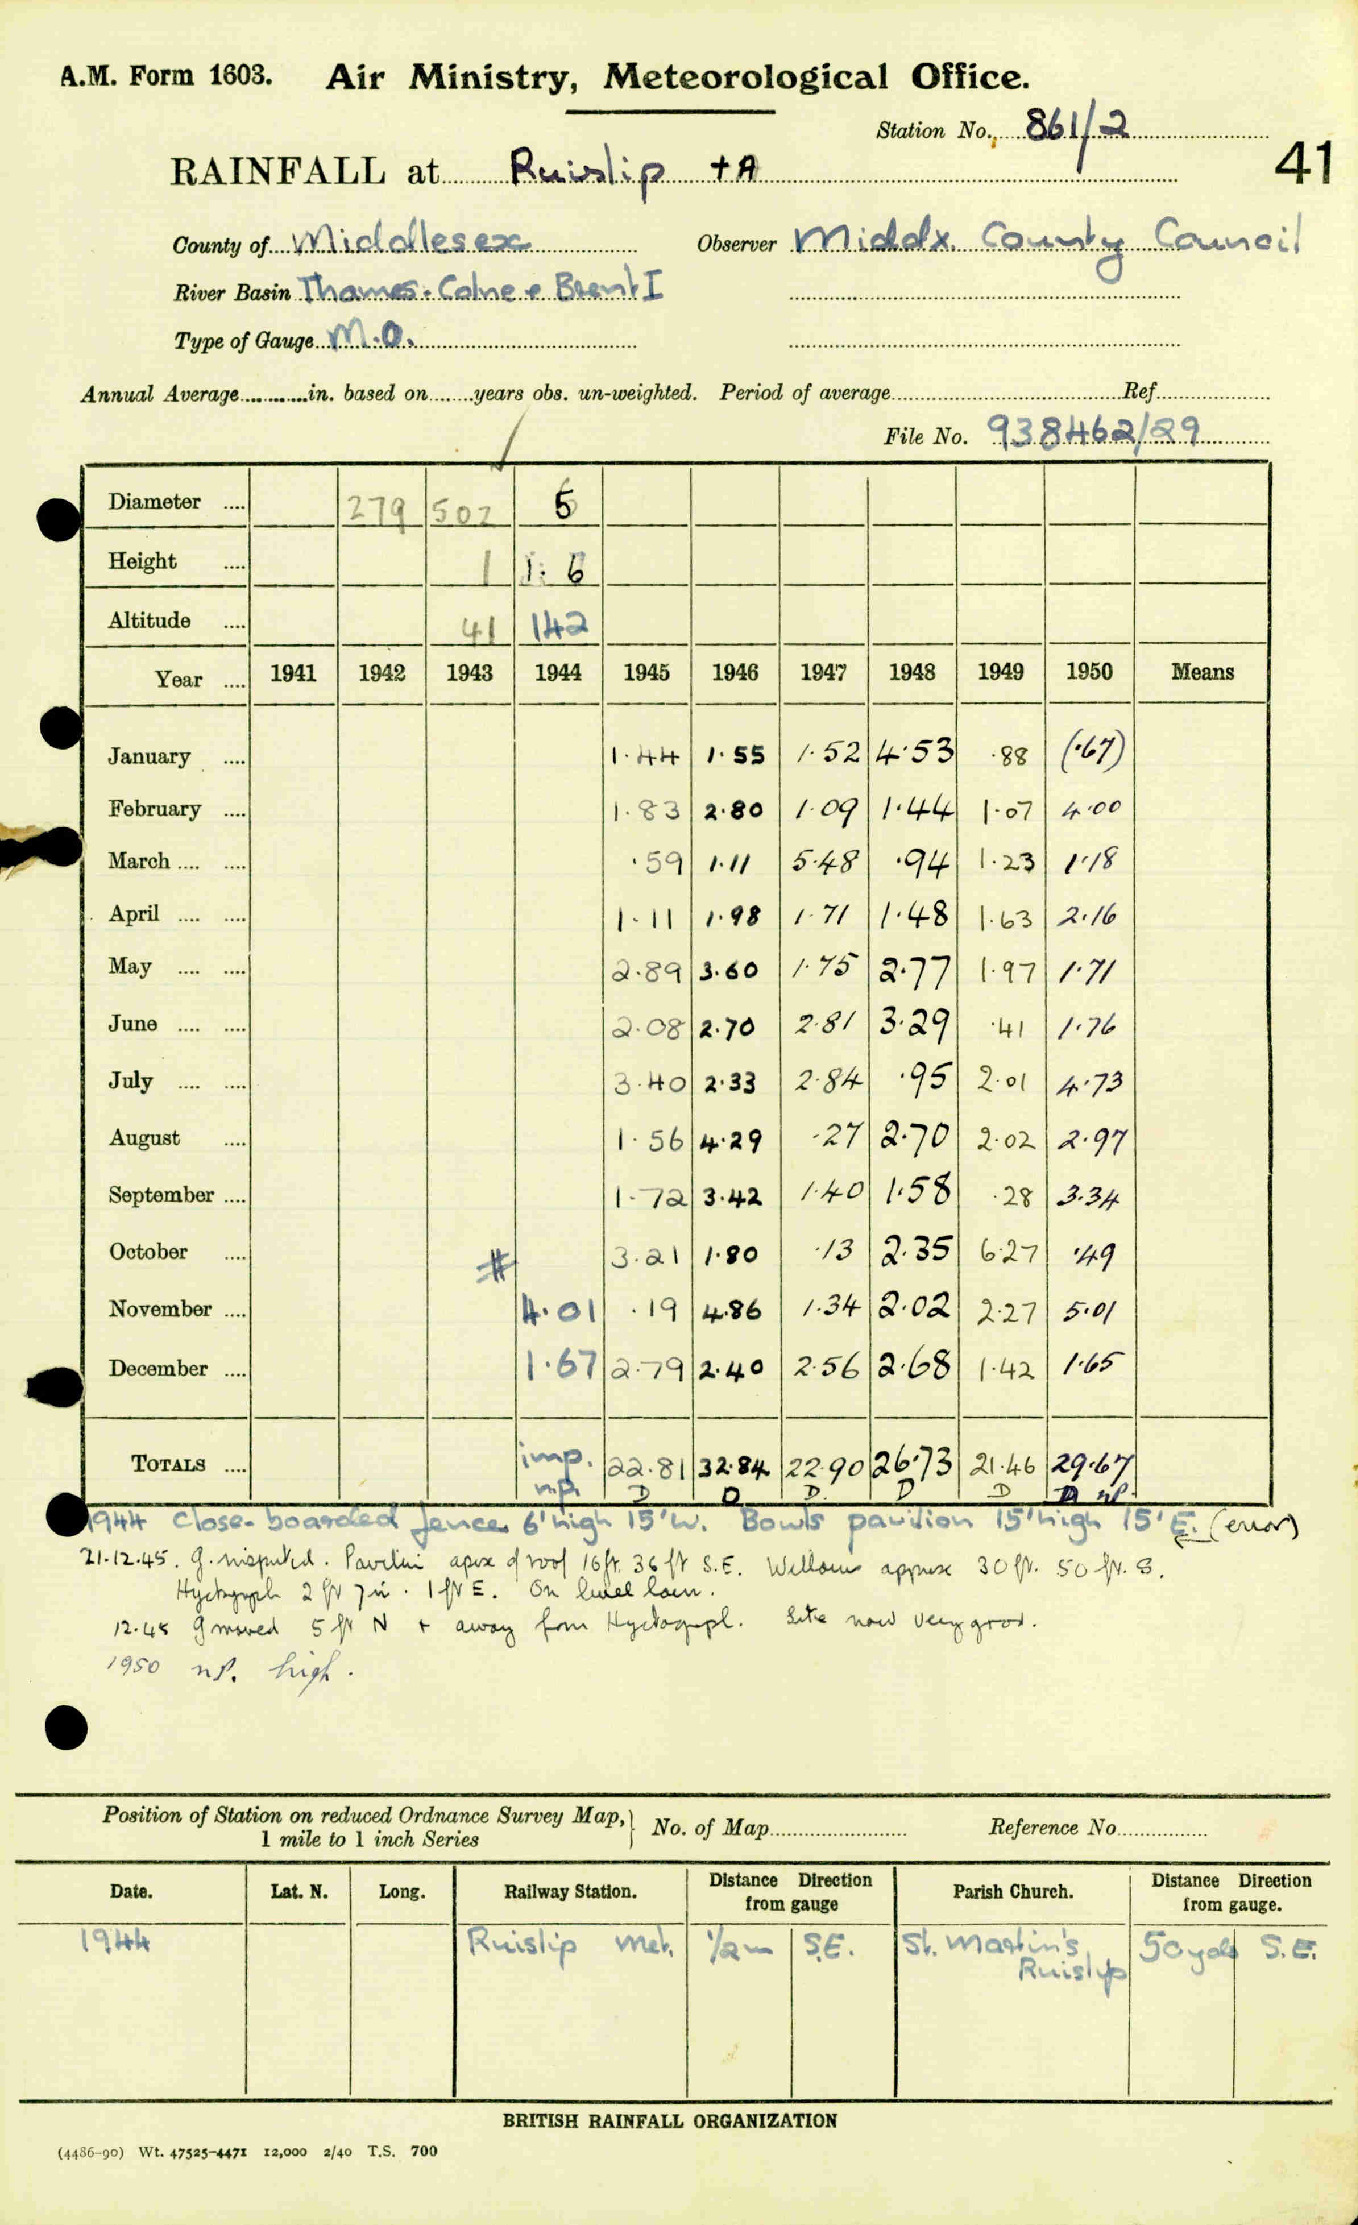 A.M. Form 1603. Air Ministry, Meteorological Office.
Station No. 861/2
41
RAINFALL at Ruislip +A
County of Middlesex Observer Middx. County Council
River Basin Thames. Colne & Brent I
Type of Gauge M.O.
Annual Average in. based on years obs. un-weighted. Period of average Ref.
File No. 938462/29
Diameter 279 502 5
Height 1 1. 6
Altitude 41 142
Year 1941 1942 1943 1944 1945 1946 1947 1948 1949 1950 Means
January 1.44 1.55 1.52 4.53 .88 (.67)
February 1.83 2.80 1.09 1.44 1.07 4.00
March .59 1.11 5.48 .94 1.23 1.18
April 1.11 1.98 1.71 1.48 1.63 2.16
May 2.89 3.60 1.75 2.77 1.97 1.71
June 2.08 2.70 2.81 3.29 .41 1.76
July 3.40 2.33 2.84 .95 2.01 4.73
August 1.56 4.29 .27 2.70 2.02 2.97
September 1.72 3.42 1.40 1.58 .28 3.34
October # 3.21 1.80 .13 2.35 6.27 .49
November 4.01 .19 4.86 1.34 2.02 2.27 5.01
December 1.67 2.79 2.40 2.56 2.68 1.42 1.65
TOTALS imp. 22.81 32.84 22.90 26.73 21.46 29.67
n.p. D D D. D D D nP.
1944 Close-boarded fence 6' high 15' W. Bowls pavilion 15' high 15' E. (error)
21.12.45. G. inspected. Pavilion apex of roof 16 ft. 36 ft S.E. Willows approx 30 ft. 50 ft. S.
Hyetograph 2 ft 7 in. 1 ft E. On level lawn.
12.45 G moved 5 ft N & away from Hyetograph. Site now very good.
1950 nP. high.
Position of Station on reduced Ordnance Survey Map, 1 mile to 1 inch Series No. of Map Reference No.
Date. Lat. N. Long. Railway Station. Distance from gauge Direction Parish Church. Distance from gauge. Direction
1944 Ruislip Met. 1/2 m S.E. St. Martin's Ruislip 50 yds S.E.
BRITISH RAINFALL ORGANIZATION
(4486-90) Wt. 47525-4471 12,000 2/40 T.S. 700